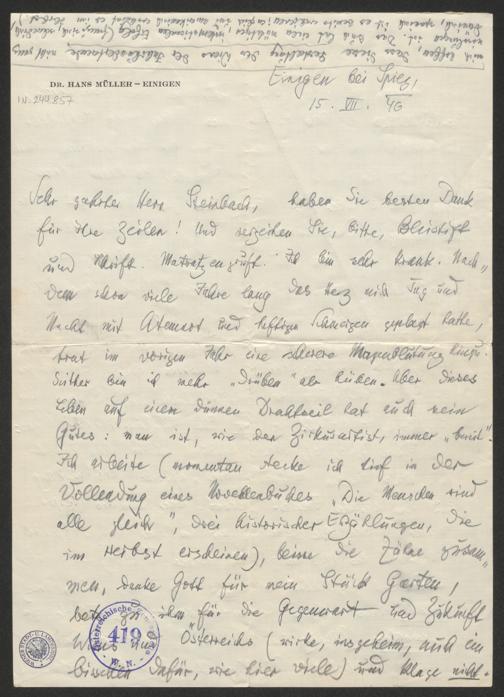 DR. HANS MÜLLER – EINIGEN
I.N. 244.857
Einigen bei Spiez,
15. VII. 46
Sehr geehrter Herr Steinbach, haben Sie besten Dank
für Ihre Zeilen! Und verzeihen Sie, bitte, Bleistift
und Schrift. Matratzengruft. Ich bin sehr krank. Nach-
dem schon viele Jahre lang das Herz mich Tag und
Nacht mit Atemnot und heftigen Schmerzen geplagt hatte,
trat im vorigen Jahr eine schwere Magenblutung hinzu.
Seither bin ich mehr „drüben" als hüben. Aber dieses
Leben auf einem dünnen Drahtseil hat auch sein
Gutes: man ist, wie der Zirkusartist, immer „bereit".
Ich arbeite (momentan stecke ich tief in der
Vollendung eines Novellenbuches „Die Menschen sind
alle gleich", drei historischer Erzählungen, die
im Herbst erscheinen), beisse die Zähne zusam-
men, danke Gott für mein Stück Garten,
bete zu ihm für die Gegenwart und Zukunft
Wiens und Österreichs (wirke, insgeheim, auch ein
bisschen dafür, wie hier viele) und klage nicht.
419